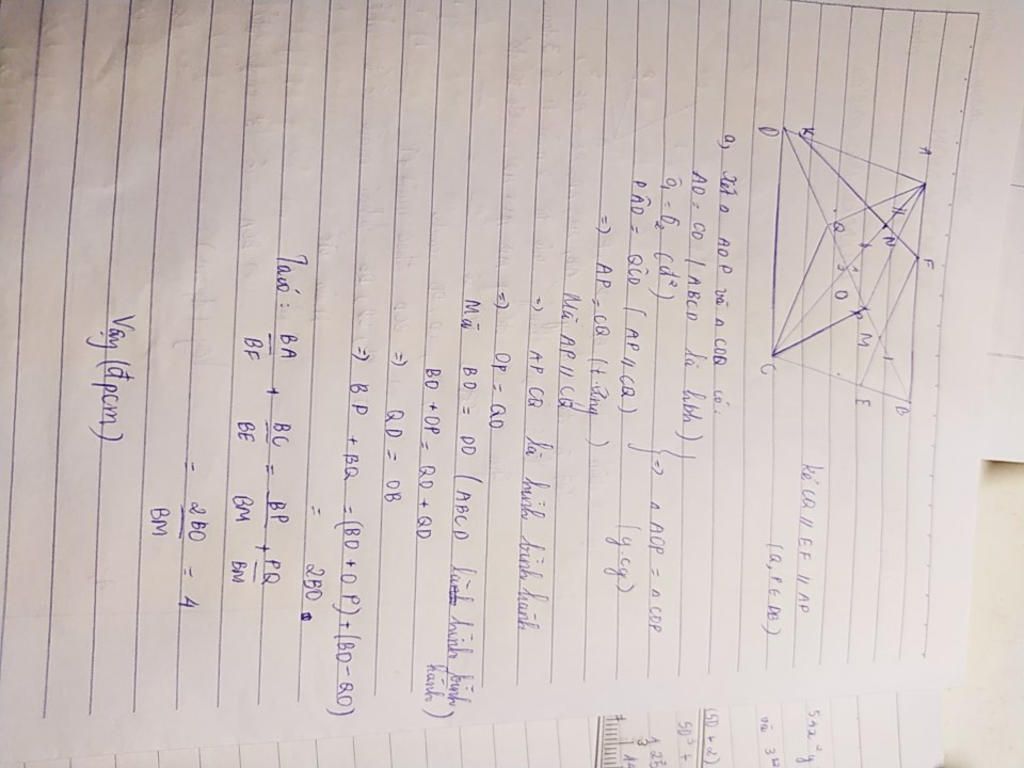 A
F
B
H
N
M
E
K
Q
O
D
C
kẻ CQ // EF // AP
(Q, P ∈ DB)
a, Xét △ AOP và △ COQ có:
AO = CO (ABCD là hbh)
Ô₁ = Ô₂ (đ²)
PÂO = QĈO (AP // CQ)
=> △ AOP = △ COP
(g.c.g)
=> AP = CQ (t.ứng)
Mà AP // CQ
=> APCQ là hình bình hành
=> OP = QO
Mà BO = DO (ABCD là hình bình hành)
BO + OP = QO + QD
=> QD = OB
=> BP + BQ = (BO + OP) + (BO - QO)
= 2BO
Ta có: BA/BF + BC/BE = BP/BM + PQ/BM
= 2BO/BM = 4
Vậy (đpcm)
51x²y
và 3
(5D + 2)
5D³ +